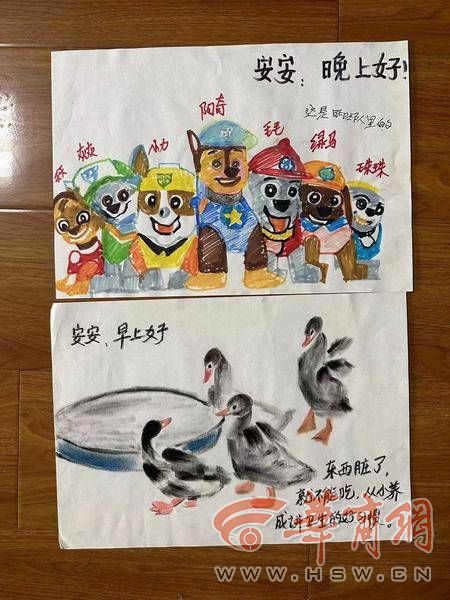 安安：晚上好！
这是旺旺队里的
阿奇
小力
毛毛
珠珠
安安、早上好
东西脏了，
就不能吃，从小养
成讲卫生的好习惯。
華商網
WWW.HSW.CN